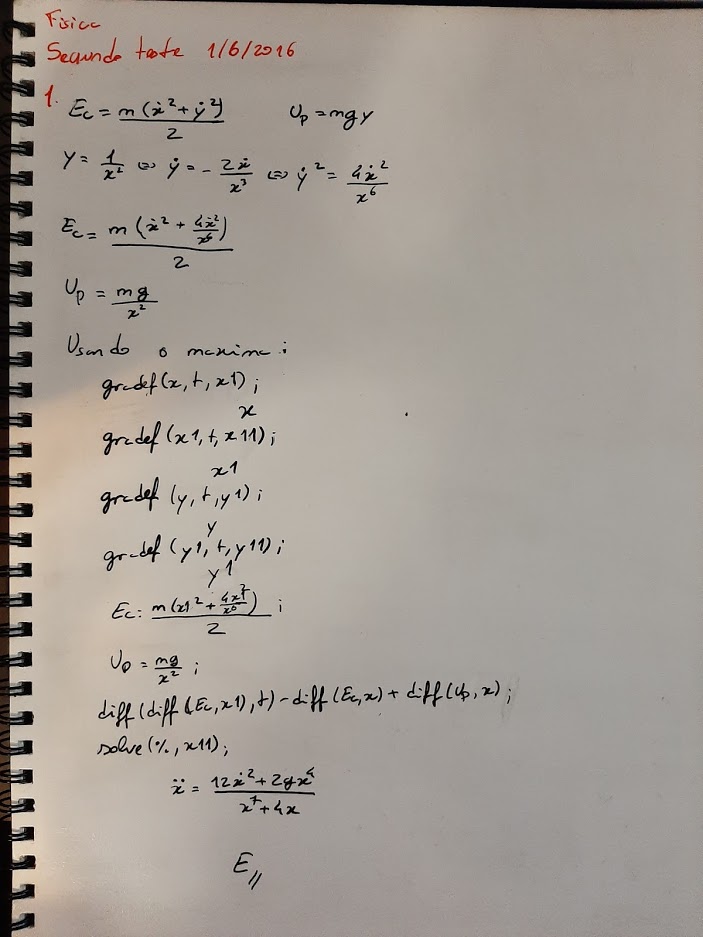 Física
Segundo teste 1/6/2016
1. Ec = m(ẋ² + ẏ²)/2    Up = mgy
y = 1/x² ⇔ ẏ = - 2ẋ/x³ ⇔ ẏ² = 4ẋ²/x⁶
Ec = m(ẋ² + 4ẋ²/x⁶)/2
Up = mg/x²
Usando o maxima:
gradef(x, t, x1);
x
gradef(x1, t, x11);
x1
gradef(y, t, y1);
y
gradef(y1, t, y11);
y1
Ec: m(x1² + 4x1²/x⁶)/2;
Up = mg/x²;
diff(diff(Ec, x1), t) - diff(Ec, x) + diff(Up, x);
solve(%, x11);
ẍ = (12ẋ² + 2gx⁴)/(x⁷ + 4x)
E//